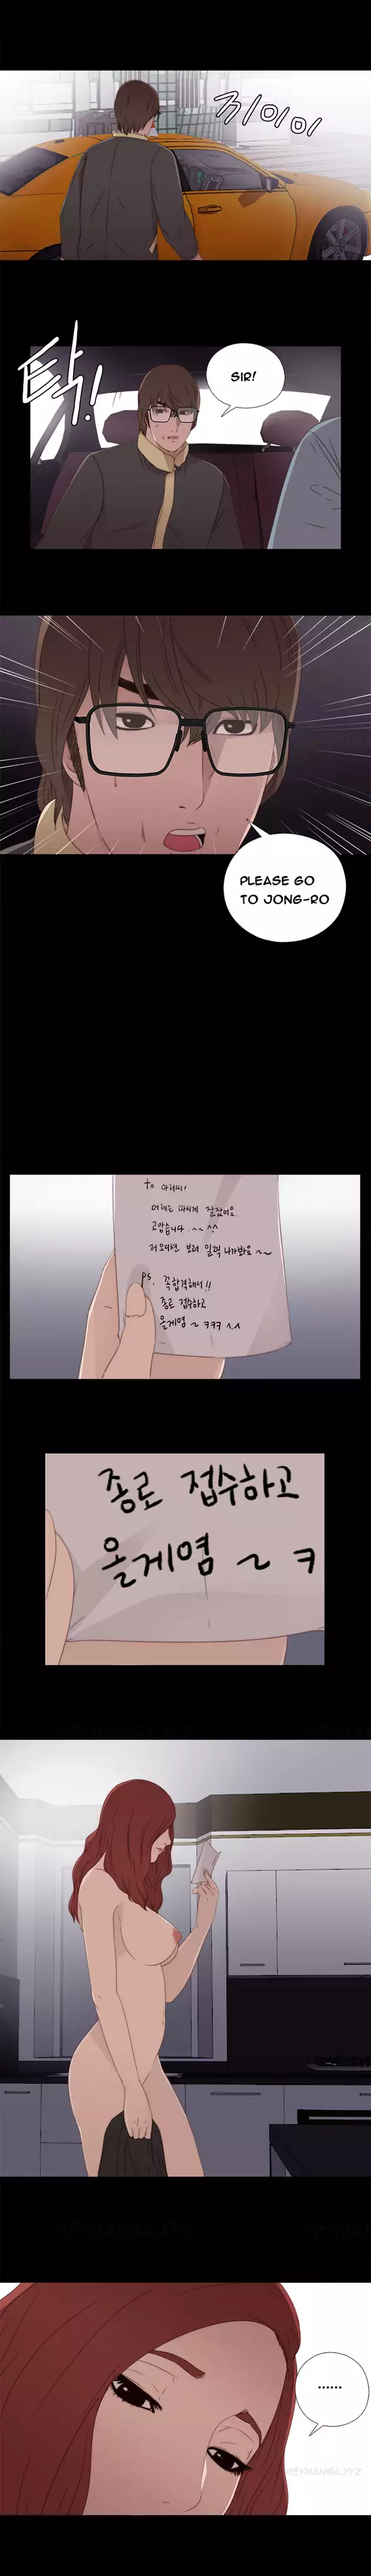 끼이이
탁!
SIR!
PLEASE GO
TO JONG-RO
to 아저씨!
어제는 맛있게 잘 잤어요.
고맙습니다.~~ ^^
ps. 꼭 합격해서!!
종로 접수하고
올게염 ~ ㅋㅋㅋ ^.^
종로 접수하고
올게염 ~ ㅋ
......
HEYMANGA.XYZ